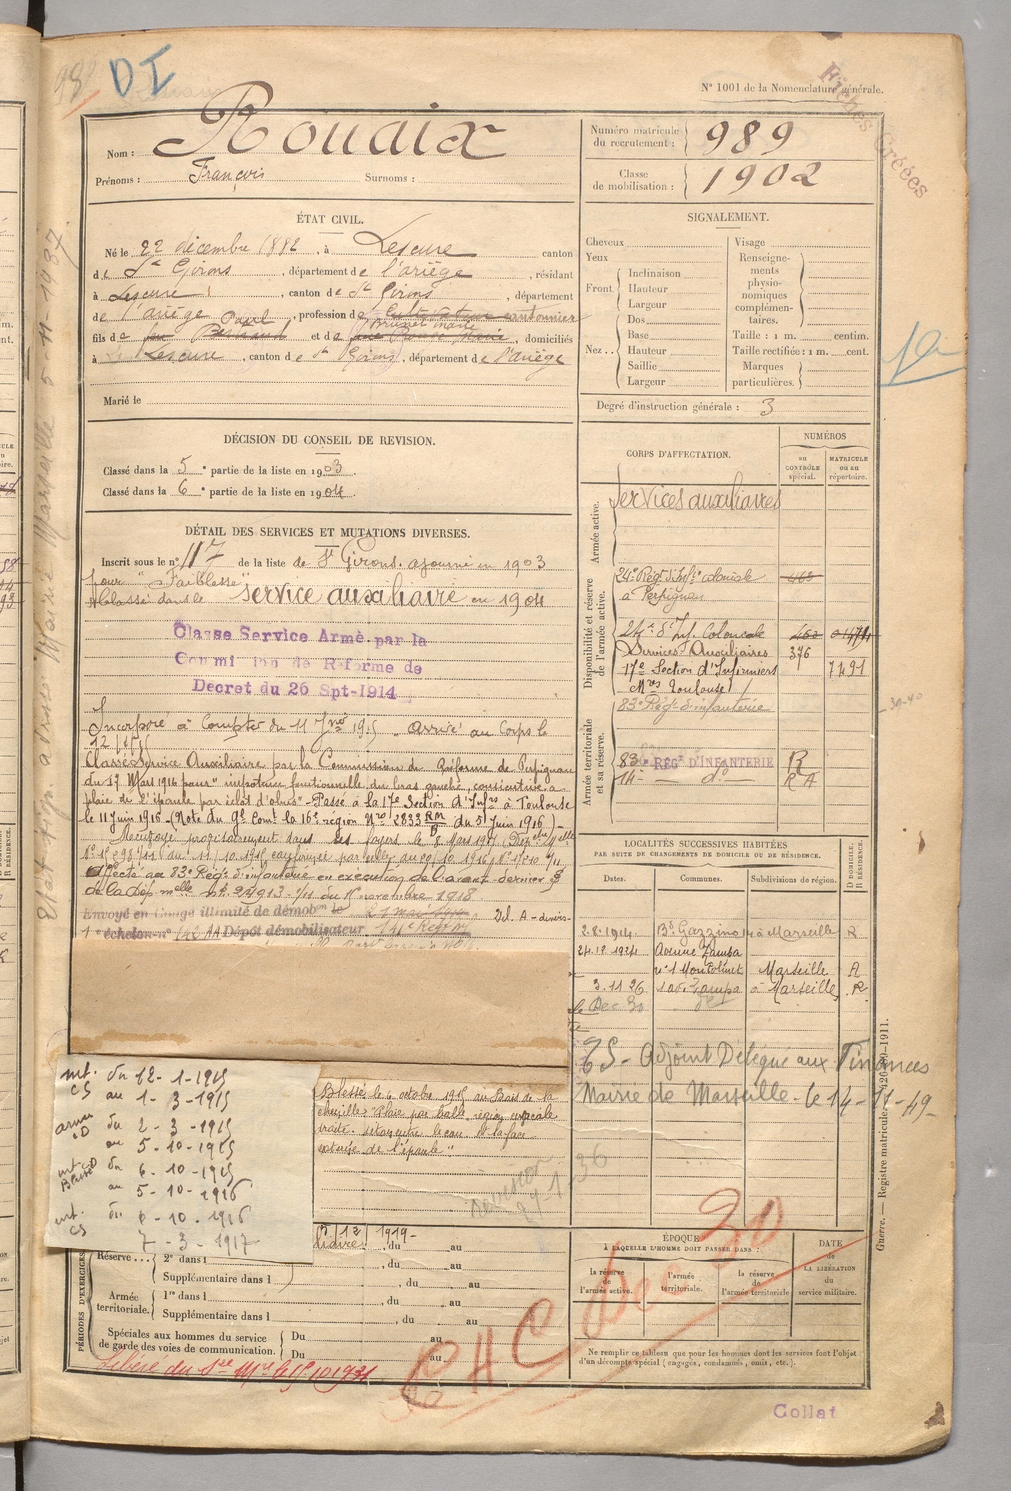 98
DI
N° 1001 de la Nomenclature générale.
Fiches Créées
Nom : Rouaix
Prénoms : François Surnoms :
Numéro matricule du recrutement : 989
Classe de mobilisation : 1902
ÉTAT CIVIL.
Né le 22 décembre 1882, à Lescure canton
de St Girons, département de l'ariège, résidant
à Lescure, canton de St Girons, département
de l'ariège, profession de cultivateur cantonnier
Paul Brunet Marie
fils de feu Bertrand et de , domiciliés
à Lescure, canton de St Girons, département de l'Ariège
Marié le
SIGNALEMENT.
Cheveux
Yeux
Front Inclinaison
Hauteur
Largeur
Nez Dos
Base
Hauteur
Saillie
Largeur
Visage
Renseignements physionomiques complémentaires.
Taille : 1 m. centim.
Taille rectifiée : 1 m. cent.
Marques particulières.
Degré d'instruction générale : 3
DÉCISION DU CONSEIL DE REVISION.
Classé dans la 5e partie de la liste en 1903
Classé dans la 6e partie de la liste en 1904
DÉTAIL DES SERVICES ET MUTATIONS DIVERSES.
Inscrit sous le n° 117 de la liste de St Girons. ajourné en 1903
pour "Faiblesse"
Classé dans le service auxiliaire en 1904
Classe Service Armé par la
Commission de Réforme de
Decret du 26 Spt-1914
Incorporé à Compter du 11 1915 Arrivé au Corps le
12
Classé Service Auxiliaire par la Commission de Réforme de Perpignan
du 17 Mars 1916 pour "impotence fonctionnelle du bras gauche, consécutive à
plaie de l'épaule par éclat d'obus" - Passé à la 17e Section d'Infrs à Toulouse
le 11 Juin 1916 (Note du Gal Comt la 16e région No 2833 RM du 5 Juin 1916)
Renvoyé provisoirement dans ses foyers le 8 Mars 1917
du 11/10.1915 confirmée par celle du
affecté au 83e Régt d'infanterie en exécution de l'avant dernier §
de la Dép. melle No 22913-1/11 du 1r novembre 1918
Envoyé en Congé illimité de démobon le
1 echelon n° Dépôt démobilisateur
CORPS D'AFFECTATION.
NUMÉROS
au CONTRÔLE spécial.
MATRICULE ou au répertoire.
Armée active.
Services auxiliaires
Disponibilité et réserve de l'armée active.
24e Régt d'Infie coloniale
à Perpignan
24e d'Inf. Coloniale
Services Auxiliaires 376
17e Section d'Infirmiers 7491
Mres Toulouse
Armée territoriale et sa réserve.
83e Régt d'infanterie
83e REGt D'INFANTERIE R
14- do R A
LOCALITÉS SUCCESSIVES HABITÉES
PAR SUITE DE CHANGEMENTS DE DOMICILE OU DE RÉSIDENCE.
Dates. Communes. Subdivisions de région. D. DOMICILE. R. RÉSIDENCE.
2.8.1914 Bd Gazzino 14 à Marseille R
24.12.1924 Avenue Zampa
n° 1 Montolivet Marseille R
3.11.26 1 av. Zampa à Marseille R
Dec 30
Adjoint Délégué aux Finances
Mairie de Marseille. le 14-11-49
int. CS du 12-1-1915
au 1-3-1915
armée CD du 2-3-1915
au 5-10-1915
int. CD Blessé du 6-10-1915
au 5-10-1916
int. CS du 6-10-1916
7-3-1917
Blessé le 6 octobre 1915 au Bois de la
chenille Plaie par balle, région cervicale
de l'épaule"
Revision
29-1-36
1919
PÉRIODES D'EXERCICES
Réserve 2e dans l , du au
Supplémentaire dans l , du au
Armée territoriale. 1re dans l , du au
Supplémentaire dans l , du au
Spéciales aux hommes du service de garde des voies de communication. Du au
Du au
Libéré du Sce Mre le 15.10.1931
CHC Dec 30
ÉPOQUE
À LAQUELLE L'HOMME DOIT PASSER DANS :
la réserve de l'armée active.
l'armée territoriale.
la réserve de l'armée territoriale
DATE de LA LIBÉRATION du service militaire.
Ne remplir ce tableau que pour les hommes dont les services font l'objet
d'un décompte spécial (engagés, condamnés, omis, etc.).
Collat
Guerre. — Registre matricule. -1911.
Marseille 5-11-1937